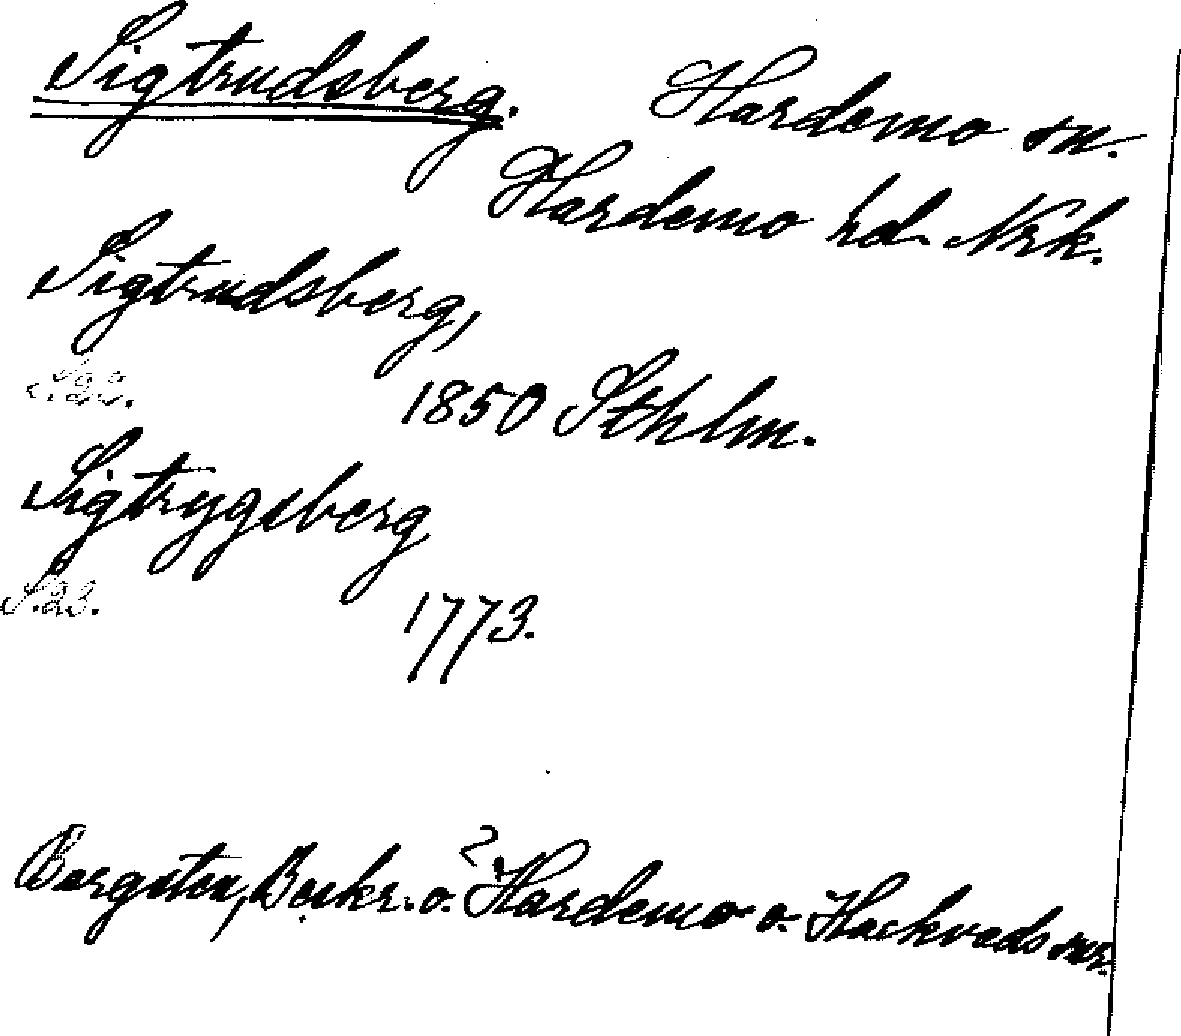 Sigtrudsberg. Hardemo sn.
Hardemo hd. Nrk.
Sigtrudsberg,
1850 Sthlm.
Sigtrygsberg
S. 23.
1773.
2
Bergsten, Beskr. o. Hardemo o. Hackvads snr.